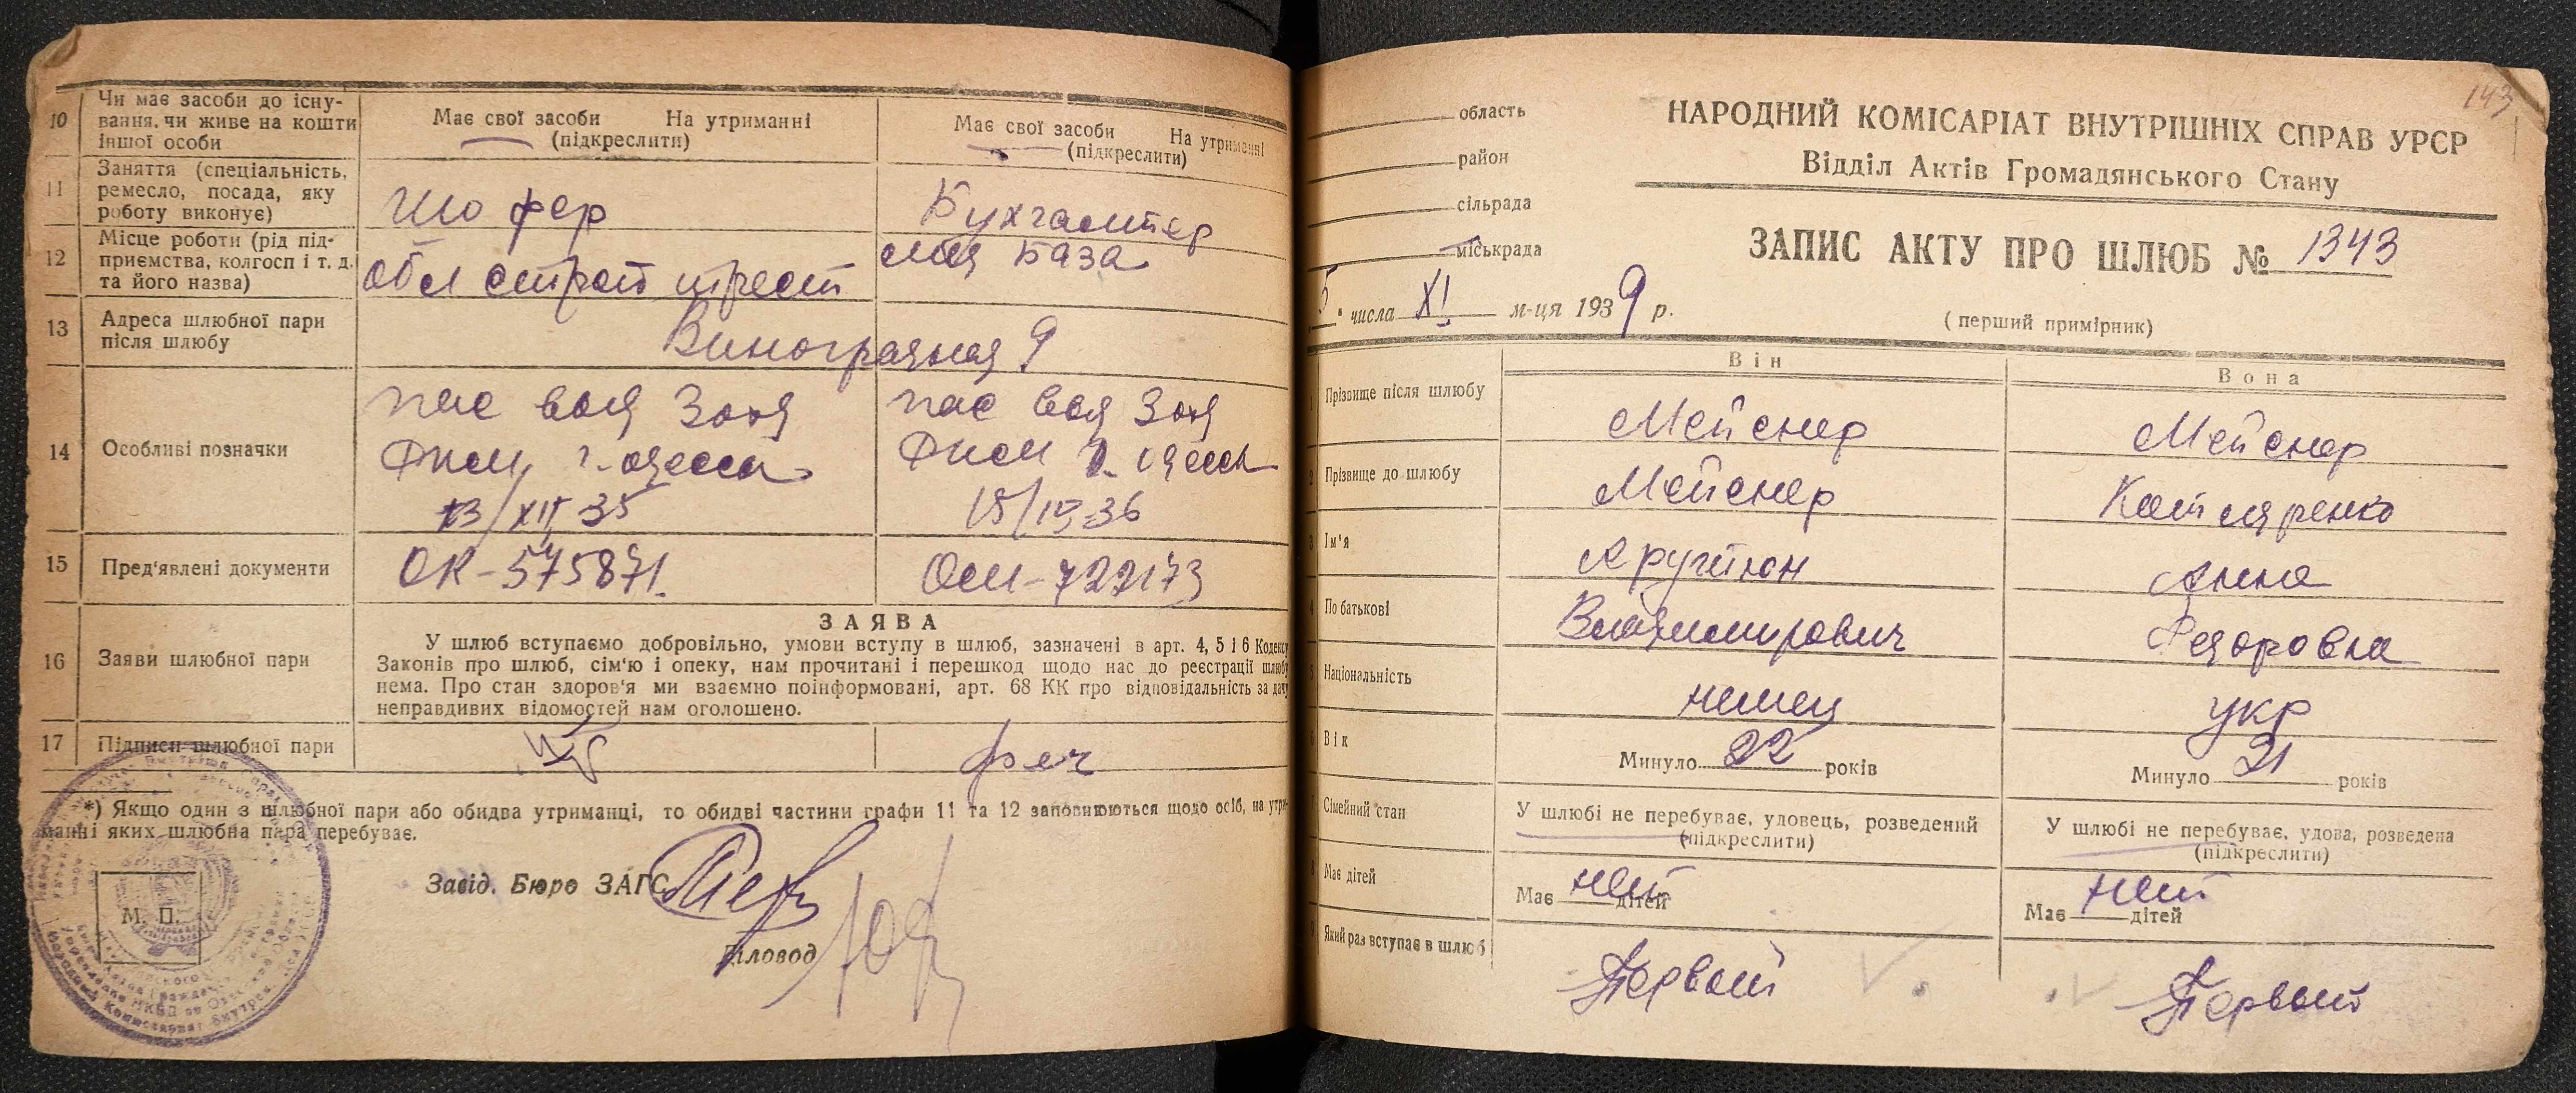 10 Чи має засоби до існу-
вання, чи живе на кошти
іншої особи
Має свої засоби На утриманні
(підкреслити)
Має свої засоби На утриманні
(підкреслити)
11 Заняття (спеціальність,
ремесло, посада, яку
роботу виконує)
Шофер
Бухгалтер
12 Місце роботи (рід під-
приємства, колгосп і т. д.
та його назва)
обл строй трест
База
13 Адреса шлюбної пари
після шлюбу
Виноградная 9
14 Особливі позначки
пас вся
г. одесса
13/XII 35
пас вся
одесса
15/IV-36
15 Пред'явлені документи
ОК-575871
ОСИ-722173
16 Заяви шлюбної пари
ЗАЯВА
У шлюб вступаємо добровільно, умови вступу в шлюб, зазначені в арт. 4, 5 і 6 Кодексу
Законів про шлюб, сім'ю і опеку, нам прочитані і перешкод щодо нас до реєстрації шлюбу
нема. Про стан здоров'я ми взаємно поінформовані, арт. 68 КК про відповідальність за дачу
неправдивих відомостей нам оголошено.
17 Підписи шлюбної пари
*) Якщо один з шлюбної пари або обидва утриманці, то обидві частини графи 11 та 12 заповнюються щодо осіб, на утри-
манні яких шлюбна пара перебуває.
Завід. Бюро ЗАГС
М. П.
Діловод
143
область
район
сільрада
міськрада
НАРОДНИЙ КОМІСАРІАТ ВНУТРІШНІХ СПРАВ УРСР
Відділ Актів Громадянського Стану
ЗАПИС АКТУ ПРО ШЛЮБ № 1343
5 " числа XI м-ця 1939 р.
(перший примірник)
Він
Вона
1 Прізвище після шлюбу
Мейснер
Мейснер
2 Прізвище до шлюбу
Мейснер
Котляренко
3 Ім'я
Анна
4 По батькові
Владимирович
Федоровна
5 Національність
немец
укр
6 Вік
Минуло 22 років
Минуло 21 років
7 Сімейний стан
У шлюбі не перебуває, уловець, розведений
(підкреслити)
У шлюбі не перебуває, удова, розведена
(підкреслити)
8 Має дітей
Має нет дітей
Має нет дітей
9 Який раз вступає в шлюб
Первый
Первый